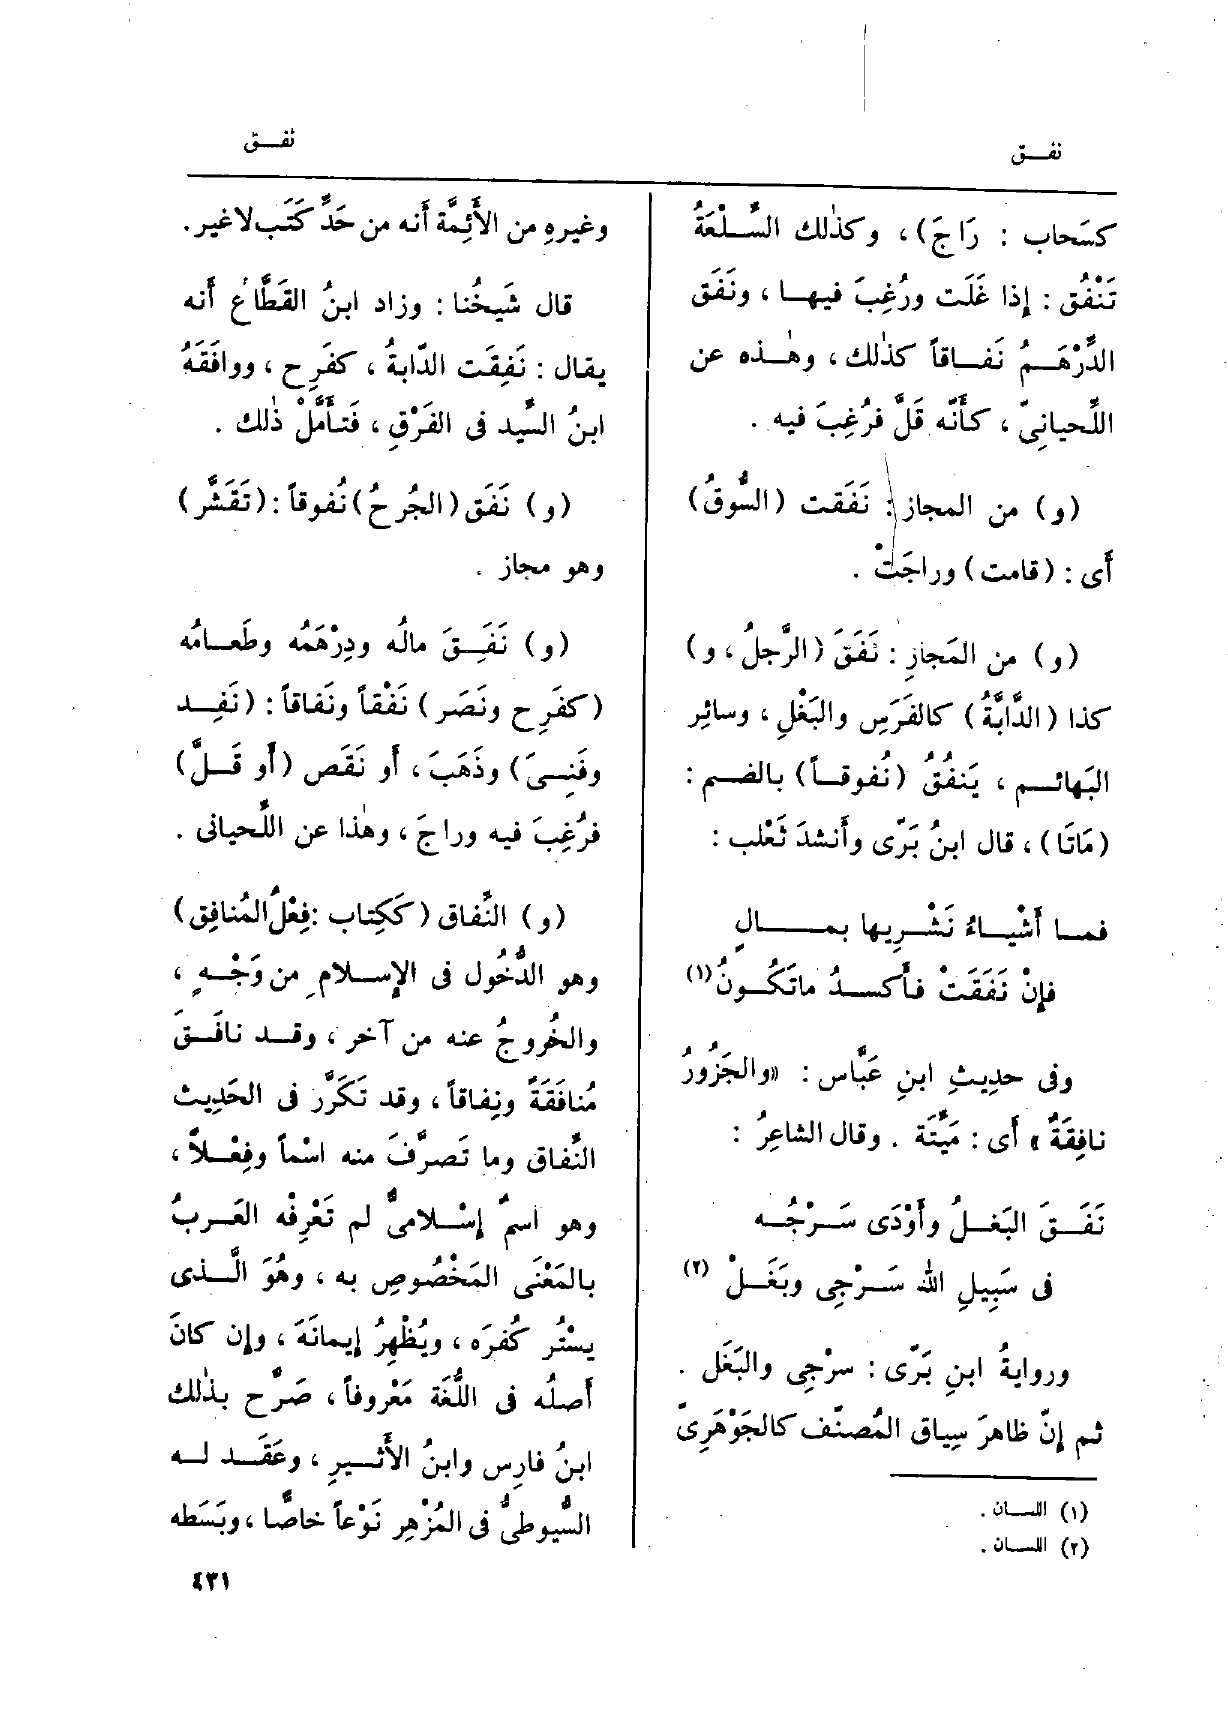 نفـــق
نفـــق
كسَحاب : رَاجَ) ، وكذٰلك السِّلْعَةُ
تَنْفُق : إذا غَلَت ورُغِبَ فيها ، ونَفَق
الدِّرْهَمُ نَفاقاً كذٰلك ، وهٰذه عن
اللِّحيانِىّ ، كأَنّه قَلَّ فرُغِبَ فيه .
(و) من المجاز : نَفَقت (السُّوقُ)
أَى : (قامت) وراجَتْ .
(و) من المَجازِ : نَفَقَ (الرَّجلُ ، و)
كذا (الدَّابَّةُ) كالفَرَسِ والبَغْلِ ، وسائِر
البَهائم ، يَنفُقُ (نُفوقاً) بالضم :
(مَاتَا) ، قال ابنُ بَرّى وأَنشدَ ثَعْلب :
فما أَشْياءُ نَشْرِيها بمالٍ
فإِنْ نَفَقَتْ فأَكسدُ ماتَكُونُ (١)
وفى حدِيثِ ابنِ عَبّاس : «والجَزُورُ
نافِقَةٌ» أَى : مَيِّتَة . وقال الشاعِرُ :
نَفَقَ البَغلُ وأَوْدَى سَرْجُه
فى سَبِيلِ اللّٰه سَرْجِى وبَغَلْ (٢)
وروايةُ ابنِ بَرّى : سرْجِى والبَغَل .
ثم إِنّ ظاهرَ سِياق المُصنّف كالجَوْهَرِىّ
(١) اللسان .
(٢) اللسان .
وغيرِهِ من الأَئِمَّة أَنه من حَدِّ كَتَب لاغير .
قال شَيخُنا : وزاد ابنُ القَطَّاع أَنه
يقال : نَفِقَت الدّابةُ ، كفَرِح ، ووافَقَهُ
ابنُ السِّيد فى الفَرْقِ ، فتأَمَّلْ ذٰلك .
(و) نَفَق (الجُرحُ) نُفوقاً : (تَقَشَّر)
وهو مجاز .
(و) نَفِقَ مالُه ودِرْهَمُه وطَعامُه
(كفَرِح ونَصَر) نَفْقاً ونَفاقاً : (نَفِد
وفَنِىَ) وذَهَبَ ، أَو نَقَص (أَو قَلَّ)
فرُغِبَ فيه وراجَ ، وهٰذا عن اللِّحيانى .
(و) النِّفاق (كَكِتاب : فِعْلُ المُنافِق)
وهو الدُّخُول فى الإِسلام من وَجْهٍ ،
والخُروجُ عنه من آخر ، وقد نافَقَ
مُنافَقَةً ونِفاقاً ، وقد تَكَرَّر فى الحَدِيث
النِّفاق وما تَصرَّفَ منه اسْماً وفِعْلاً ،
وهو اسمٌ إِسْلامىٌّ لم تَعْرِفْه العَربُ
بالمَعْنَى المَخْصُوصِ به ، وهُوَ الَّذى
يسْتُر كُفرَه ، ويُظْهِرُ إيمانَهَ ، وإِن كانَ
أَصلُه فى اللُّغَة مَعْروفاً ، صَرَّح بذٰلك
ابنُ فارِس وابنُ الأَثيرِ ، وعَقَد له
السُّيوطىُّ فى المُزْهِر نَوْعاً خاصًّا ، وبَسَطه
٤٣١